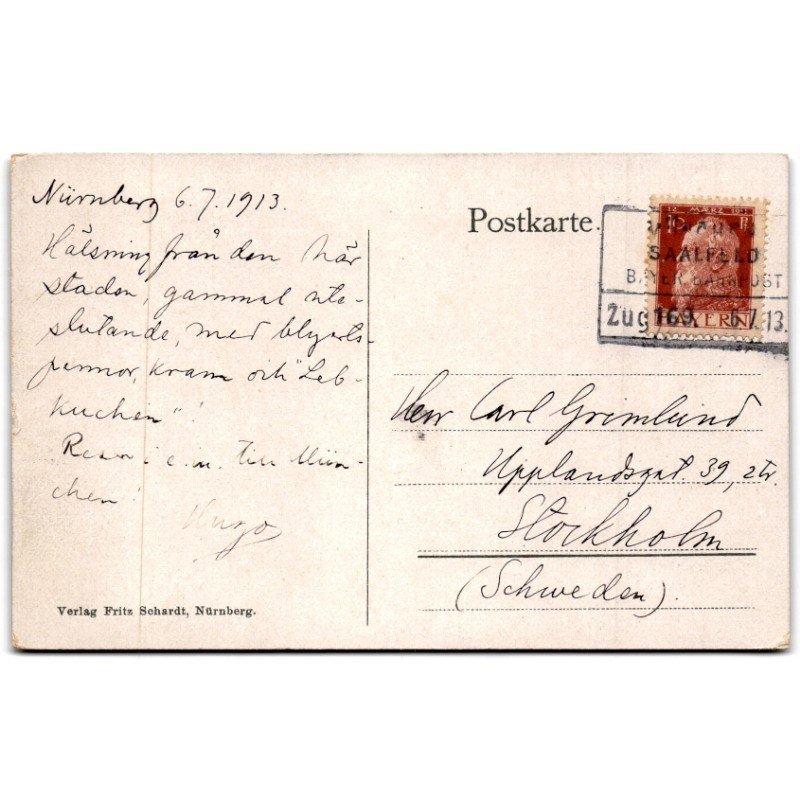 Nürnberg 6.7.1913.
Hälsning från den här
staden, gammal ute-
slutande, med blyerts-
pennor, kram och "Leb-
kuchen"!
Reser i e.m. till Mün-
chen!
Hugo
Verlag Fritz Schardt, Nürnberg.
Postkarte.
MÄRZ
SAALFELD
BAYER. BAHNPOST
Zug 169. 6.7.13.
BAYERN
Herr Carl Grimlund
Upplandsgat. 39, 2tr.
Stockholm
(Schweden).